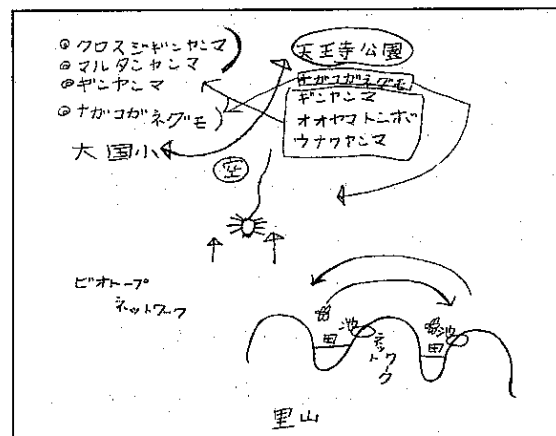 ◎クロスジギンヤンマ
◎マルタンヤンマ
◎ギンヤンマ
◎ナガコガネグモ
大国小
天王寺公園
ナガコガネグモ
ギンヤンマ
オオヤマトンボ
ウチワヤンマ
空
ビオトープ
ネットワーク
田
池
ネットワーク
池
田
里山